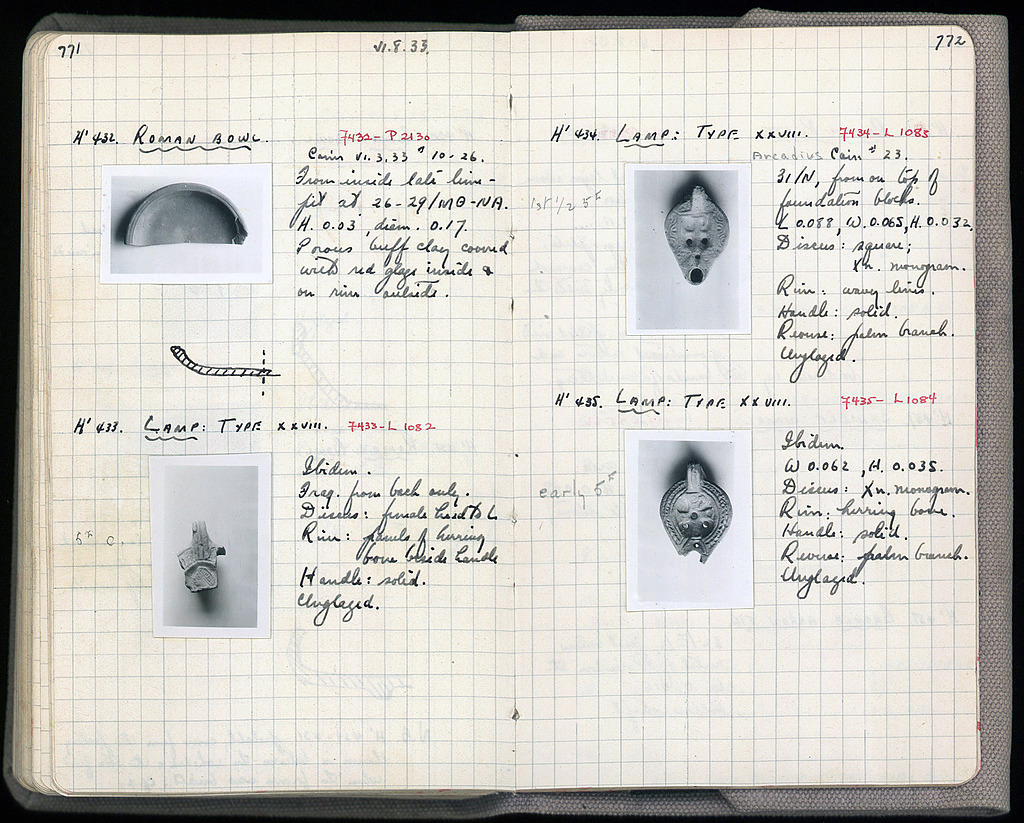 771
VI.8.33.
H' 432. ROMAN BOWL. 7432- P 2130
Coins VI.3.33 # 10-26.
From inside late lime-
pit at 26-29/ΜΘ-ΝΑ.
H. 0.03, diam. 0.17.
Porous buff clay covered
with red glaze inside &
on rim outside.
H' 433. LAMP: TYPE XXVIII. 7433-L 1082
5th C.
Ibidem.
Frag. from back only.
Discus: female head to L
Rim: panels of herring
bone beside handle
Handle: solid.
Unglazed.
772
H' 434. LAMP: TYPE XXVIII. 7434-L 1083
Arcadius Coin # 23.
1st 1/2 5th
31/N, from on top of
foundation blocks.
L 0.088, W. 0.065, H. 0.032,
Discus: square;
Xn. monogram.
Rim: wavy lines.
Handle: solid.
Reverse: palm branch.
Unglazed.
H' 435. LAMP: TYPE XXVIII. 7435- L 1084
early 5th
Ibidem.
W 0.062, H. 0.035.
Discus: Xn. monogram.
Rim: herring bone.
Handle: solid.
Reverse: palm branch.
Unglazed.